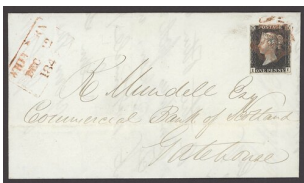 DEC 2
184
POSTAGE
ONE PENNY
R Mundell Esq
Commercial Bank of Scotland
Gatehouse